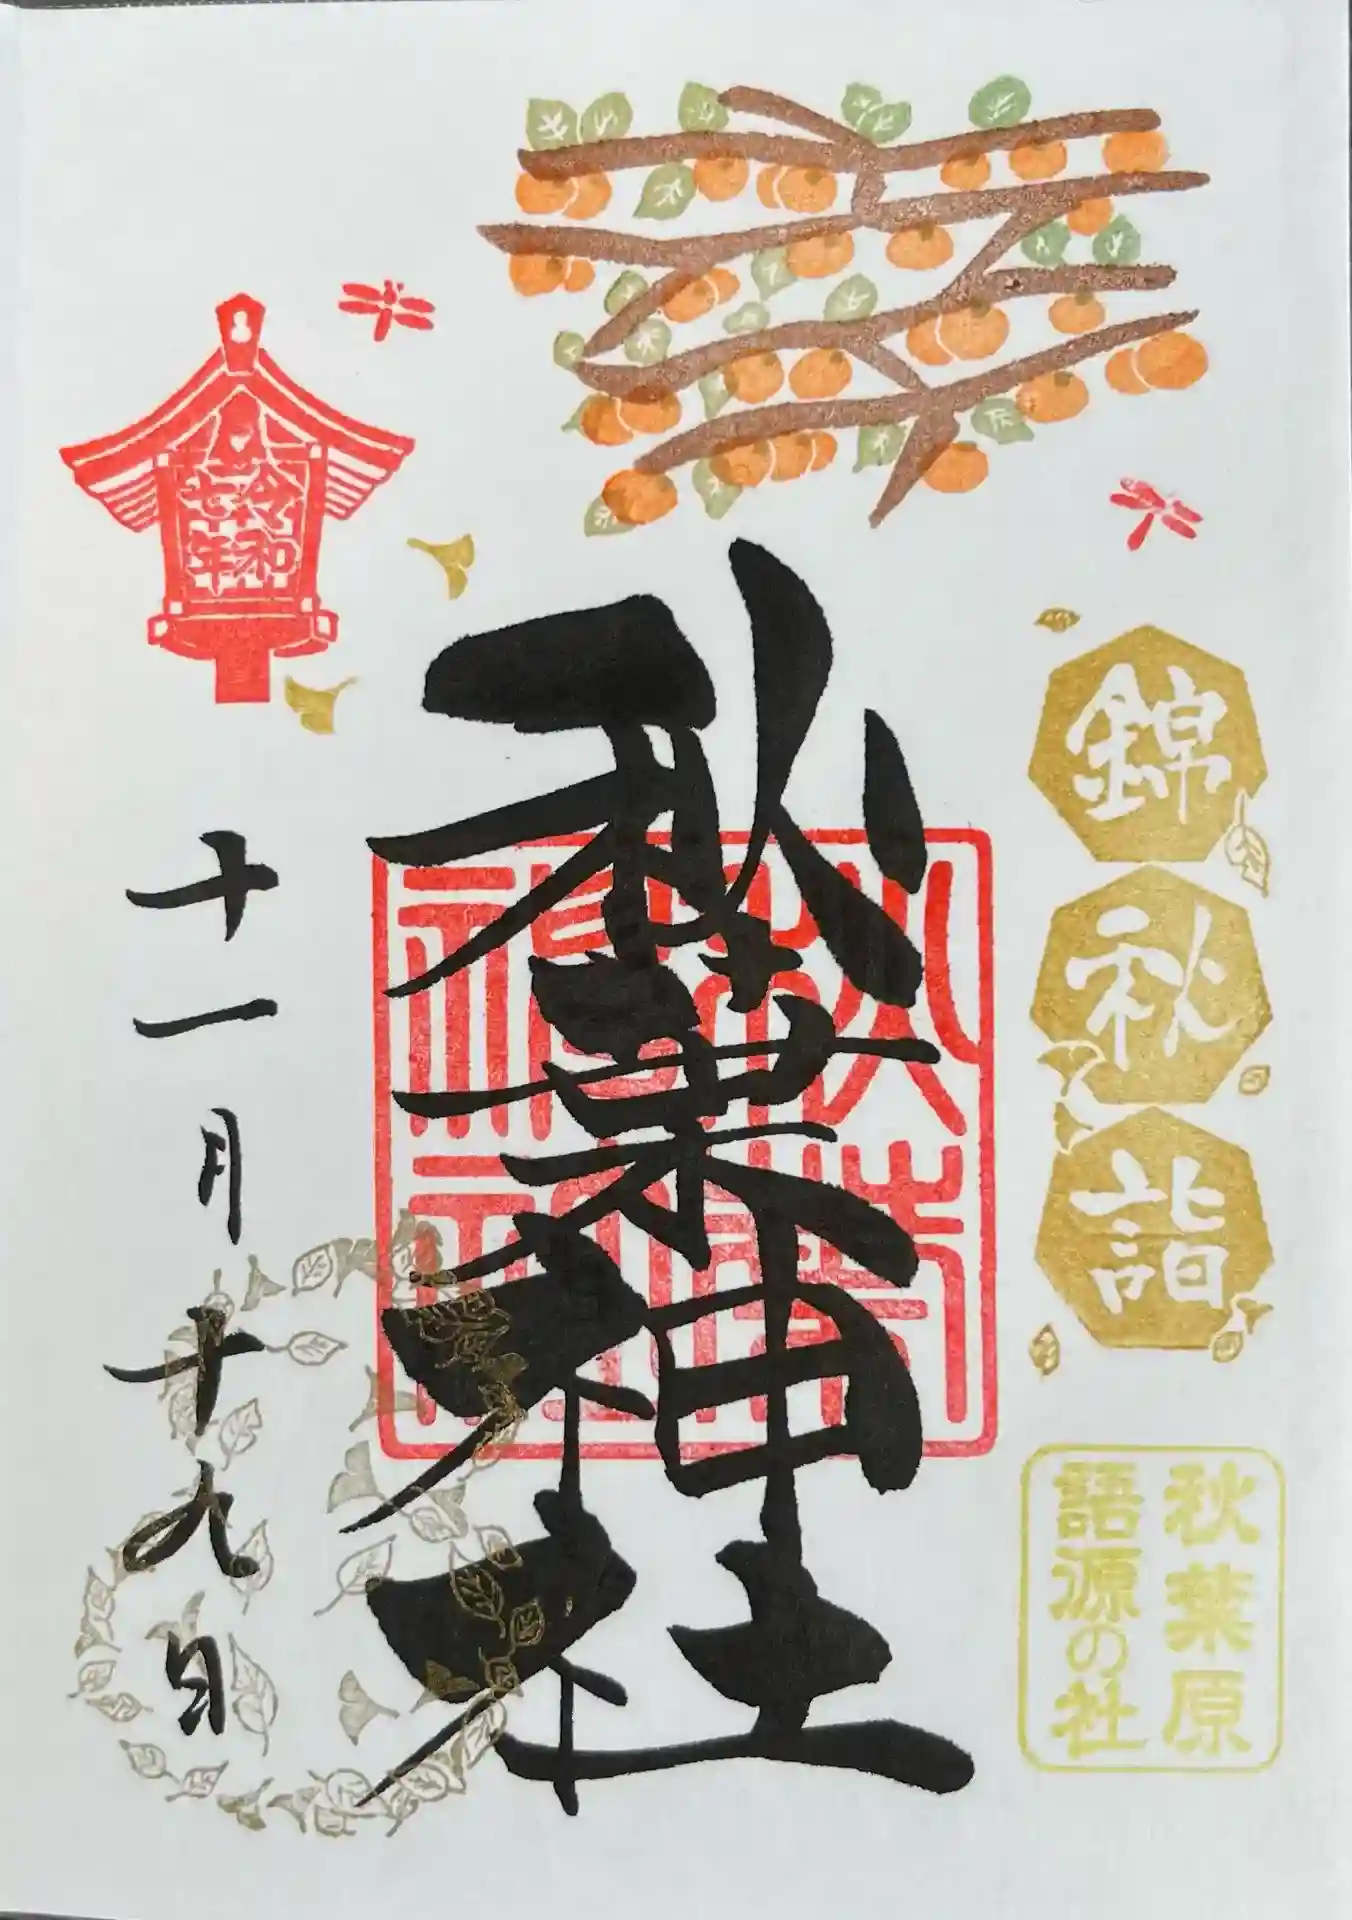 錦秋詣
秋葉原
語源の社
秋葉神社
秋葉神社
令和
七年
十一月十九日